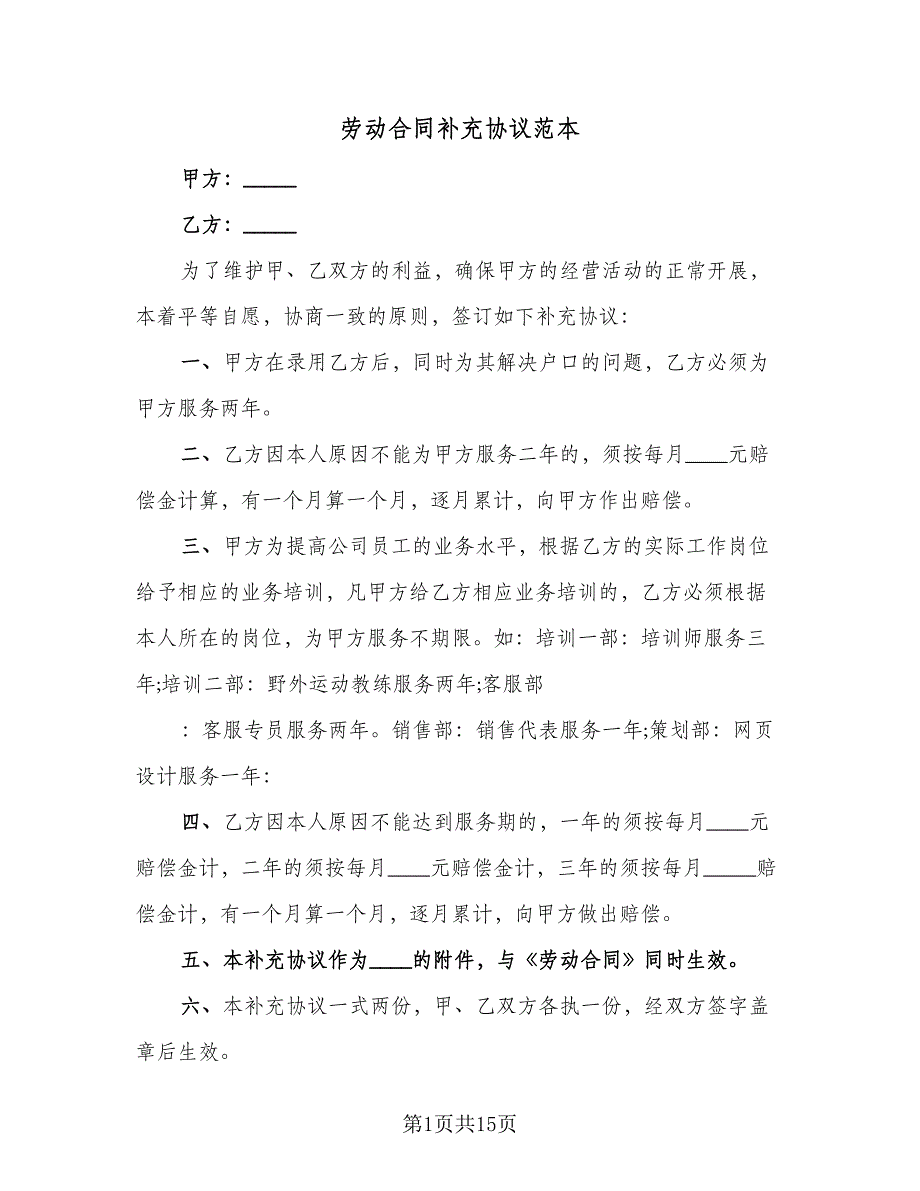 劳动合同补充协议范本
甲方：_____
乙方：_____
为了维护甲、乙双方的利益，确保甲方的经营活动的正常开展，
本着平等自愿，协商一致的原则，签订如下补充协议：
一、甲方在录用乙方后，同时为其解决户口的问题，乙方必须为
甲方服务两年。
二、乙方因本人原因不能为甲方服务二年的，须按每月____元赔
偿金计算，有一个月算一个月，逐月累计，向甲方作出赔偿。
三、甲方为提高公司员工的业务水平，根据乙方的实际工作岗位
给予相应的业务培训，凡甲方给乙方相应业务培训的，乙方必须根据
本人所在的岗位，为甲方服务不期限。如：培训一部：培训师服务三
年;培训二部：野外运动教练服务两年;客服部
：客服专员服务两年。销售部：销售代表服务一年;策划部：网页
设计服务一年：
四、乙方因本人原因不能达到服务期的，一年的须按每月____元
赔偿金计，二年的须按每月____元赔偿金计，三年的须按每月_____赔
偿金计，有一个月算一个月，逐月累计，向甲方做出赔偿。
五、本补充协议作为____的附件，与《劳动合同》同时生效。
六、本补充协议一式两份，甲、乙双方各执一份，经双方签字盖
章后生效。
第1页共15页